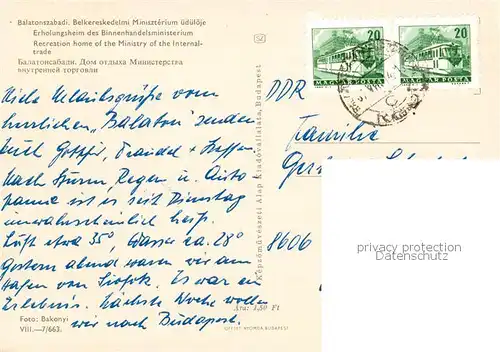 Balatonszabadi. Belkereskedelmi Minisztérium üdülője
Erholungsheim des Binnenhandelsministerium
Recreation home of the Ministry of the Internal-
trade
Балатонсабади. Дом отдыха Министерства
внутренней торговли
Viele Urlaubsgrüße vom
herrlichen „Balaton" senden
Euch Gottfr., Traudel + Steffen
Nach Sturm, Regen u. Auto
panne ist es seit Dienstag
unwahrscheinlich heiß.
Luft etwa 35°, Wasser ca. 28°
Gestern abend waren wir am
Hafen von Siófok. Es war ein
Erlebnis. Nächste Woche wollen
wir nach Budapest.
Foto: Bakonyi
VIII.—7/663.
Ára: 1,50 Ft
OFFSET-NYOMDA BUDAPEST
Képzőművészeti Alap Kiadóvállalata, Budapest
20
MAGYAR POSTA
20
MAGYAR POSTA
DDR
Familie
8606
personal data protection
Datenschutz